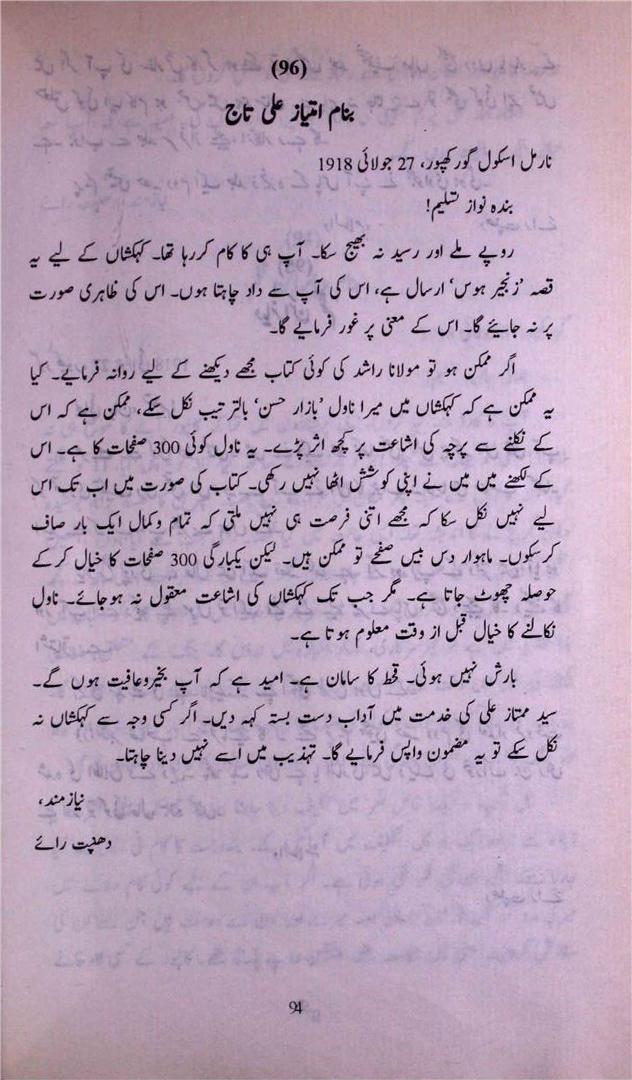 (96)
بنام امتیاز علی تاج
نارمل اسکول گورکھپور، 27 جولائی 1918
بندہ نواز تسلیم!
روپے ملے اور رسید نہ بھیج سکا۔ آپ ہی کا کام کررہا تھا۔ کہکشاں کے لیے یہ
قصہ ’زنجیر ہوس‘ ارسال ہے، اس کی آپ سے داد چاہتا ہوں۔ اس کی ظاہری صورت
پر نہ جایئے گا۔ اس کے معنی پر غور فرمایے گا۔
اگر ممکن ہو تو مولانا راشد کی کوئی کتاب مجھے دیکھنے کے لیے روانہ فرمایے۔ کیا
یہ ممکن ہے کہ کہکشاں میں میرا ناول ’بازار حسن‘ بالترتیب نکل سکے، ممکن ہے کہ اس
کے نکلنے سے پرچہ کی اشاعت پر کچھ اثر پڑے۔ یہ ناول کوئی 300 صفحات کا ہے۔ اس
کے لکھنے میں میں نے اپنی کوشش اٹھا نہیں رکھی۔ کتاب کی صورت میں اب تک اس
لیے نہیں نکل سکا کہ مجھے اتنی فرصت ہی نہیں ملتی کہ تمام وکمال ایک بار صاف
کرسکوں۔ ماہوار دس بیس صفحے تو ممکن ہیں۔ لیکن یکبارگی 300 صفحات کا خیال کرکے
حوصلہ چھوٹ جاتا ہے۔ مگر جب تک کہکشاں کی اشاعت معقول نہ ہوجائے۔ ناول
نکالنے کا خیال قبل از وقت معلوم ہوتا ہے۔
بارش نہیں ہوئی۔ قحط کا سامان ہے۔ امید ہے کہ آپ بخیروعافیت ہوں گے۔
سید ممتاز علی کی خدمت میں آداب دست بستہ کہہ دیں۔ اگر کسی وجہ سے کہکشاں نہ
نکل سکے تو یہ مضمون واپس فرمایے گا۔ تہذیب میں اُسے نہیں دینا چاہتا۔
نیازمند،
دھنپت رائے
94